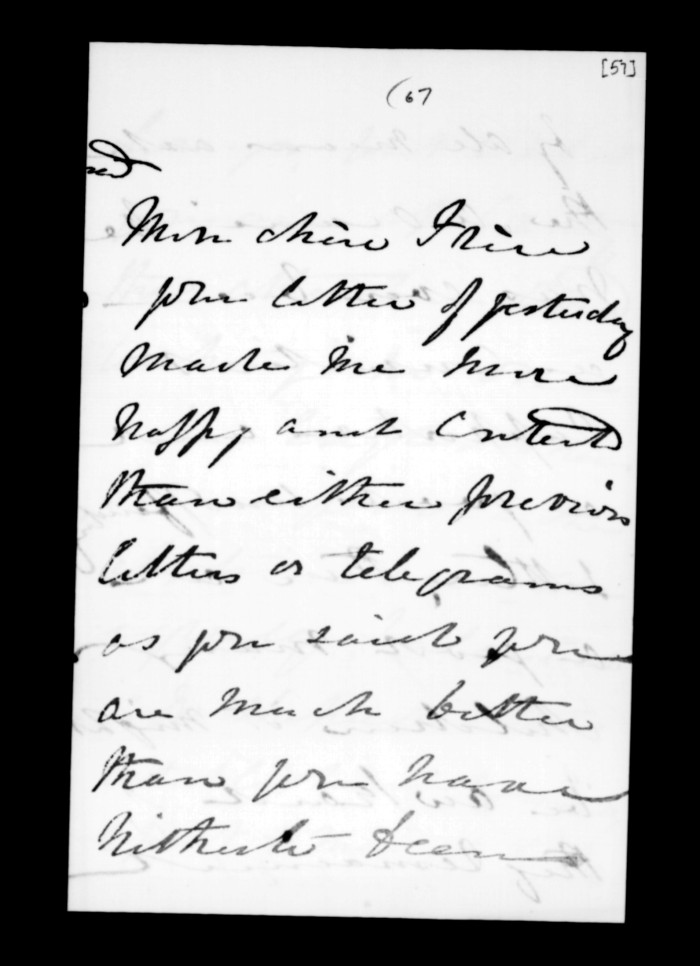 [57]
(67
Mon chère Irène
your letter of yesterday
made me more
happy and content
than either previous
letters or telegrams
as you said you
are much better
than you have
hitherto been